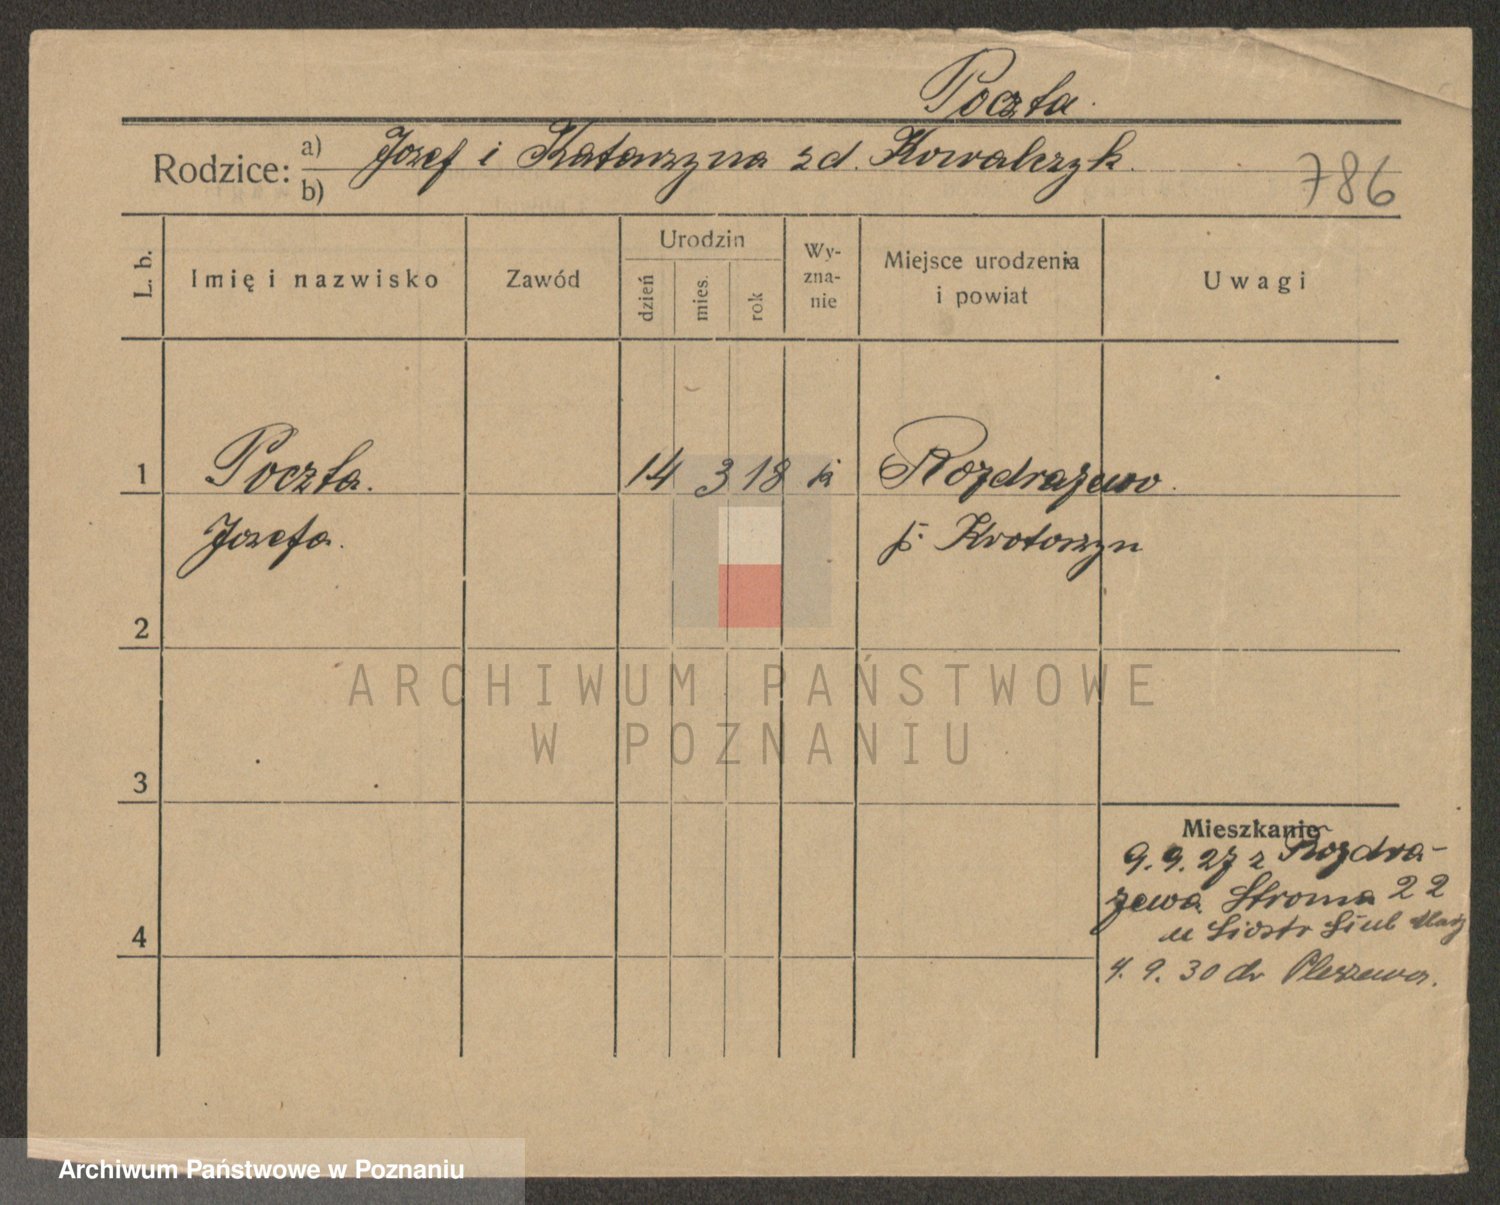 Poczta.
Rodzice: a) Józef i Katarzyna z d. Kowalczyk.
b)
786
L. b.
Imię i nazwisko
Zawód
Urodzin
dzień
mies.
rok
Wy-
zna-
nie
Miejsce urodzenia
i powiat
Uwagi
1 Poczta. 14 3 18 k Rozdrażewo.
Józefa. p. Krotoszyn
2
ARCHIWUM PAŃSTWOWE
W POZNANIU
3
Mieszkanie
9. 9. 27 z Rozdra-
żewa Stroma 22
u Siostr
4
4. 9. 30 do Pleszewa.
Archiwum Państwowe w Poznaniu